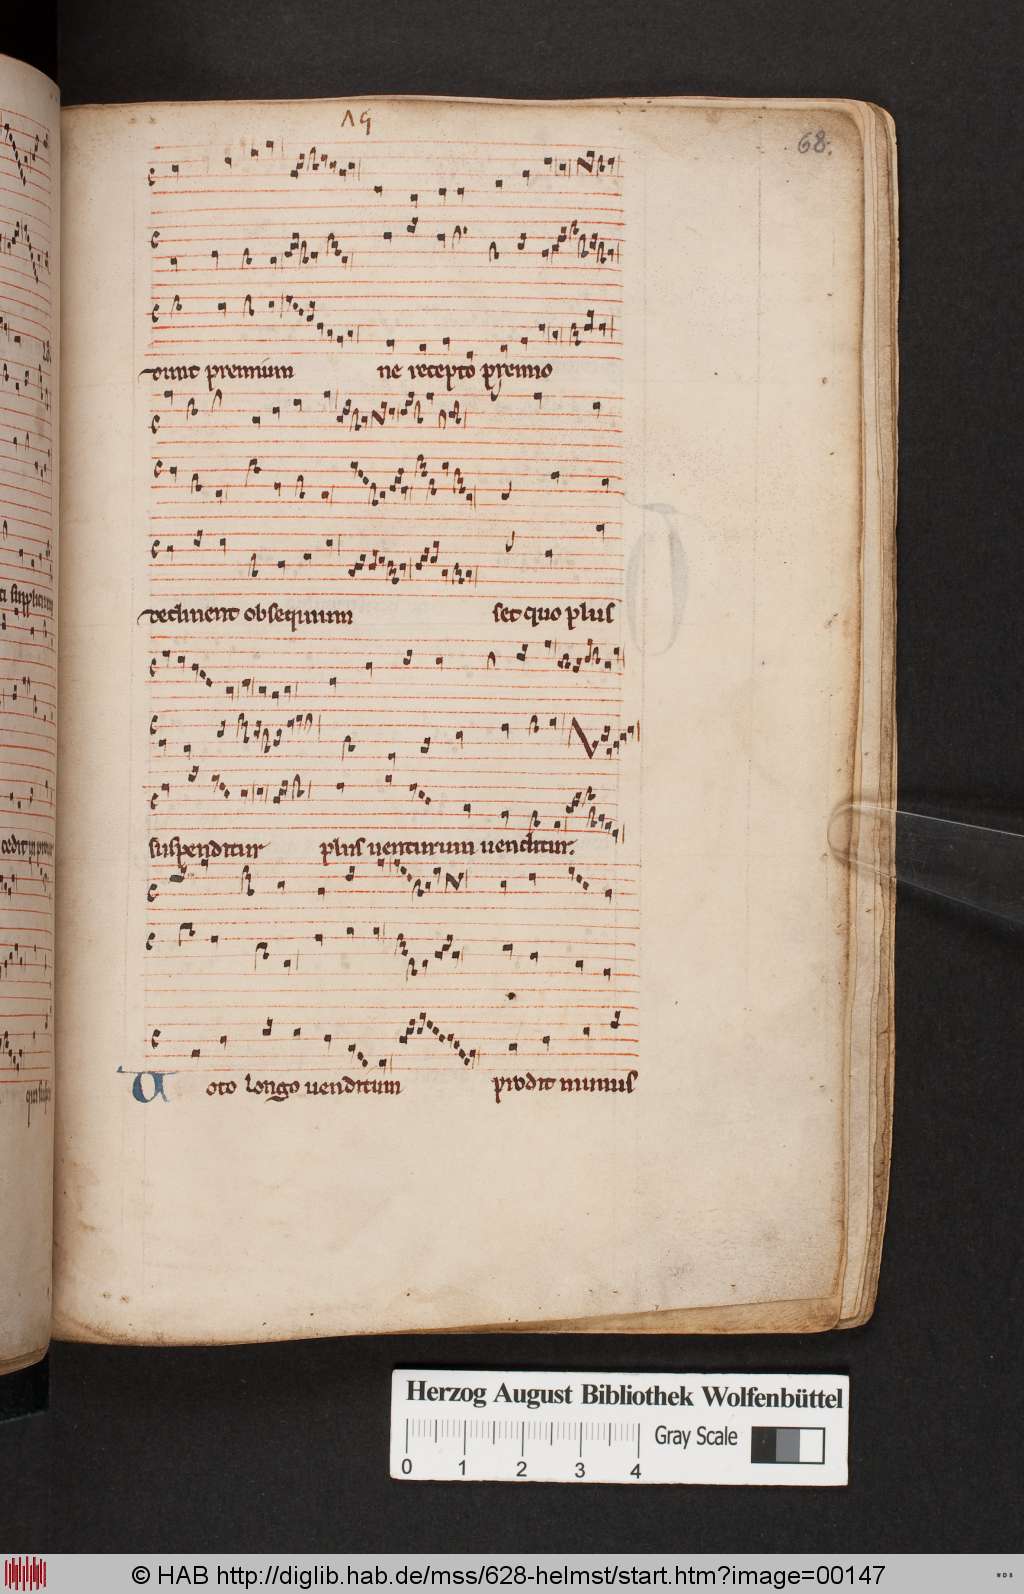 68.
dunt premium ne recepto premio
declinent obsequium set quo plus
suspenditur plus venturum venditur.
Voto longo venditum prodit munus
Herzog August Bibliothek Wolfenbüttel
Gray Scale
0 1 2 3 4
© HAB http://diglib.hab.de/mss/628-helmst/start.htm?image=00147